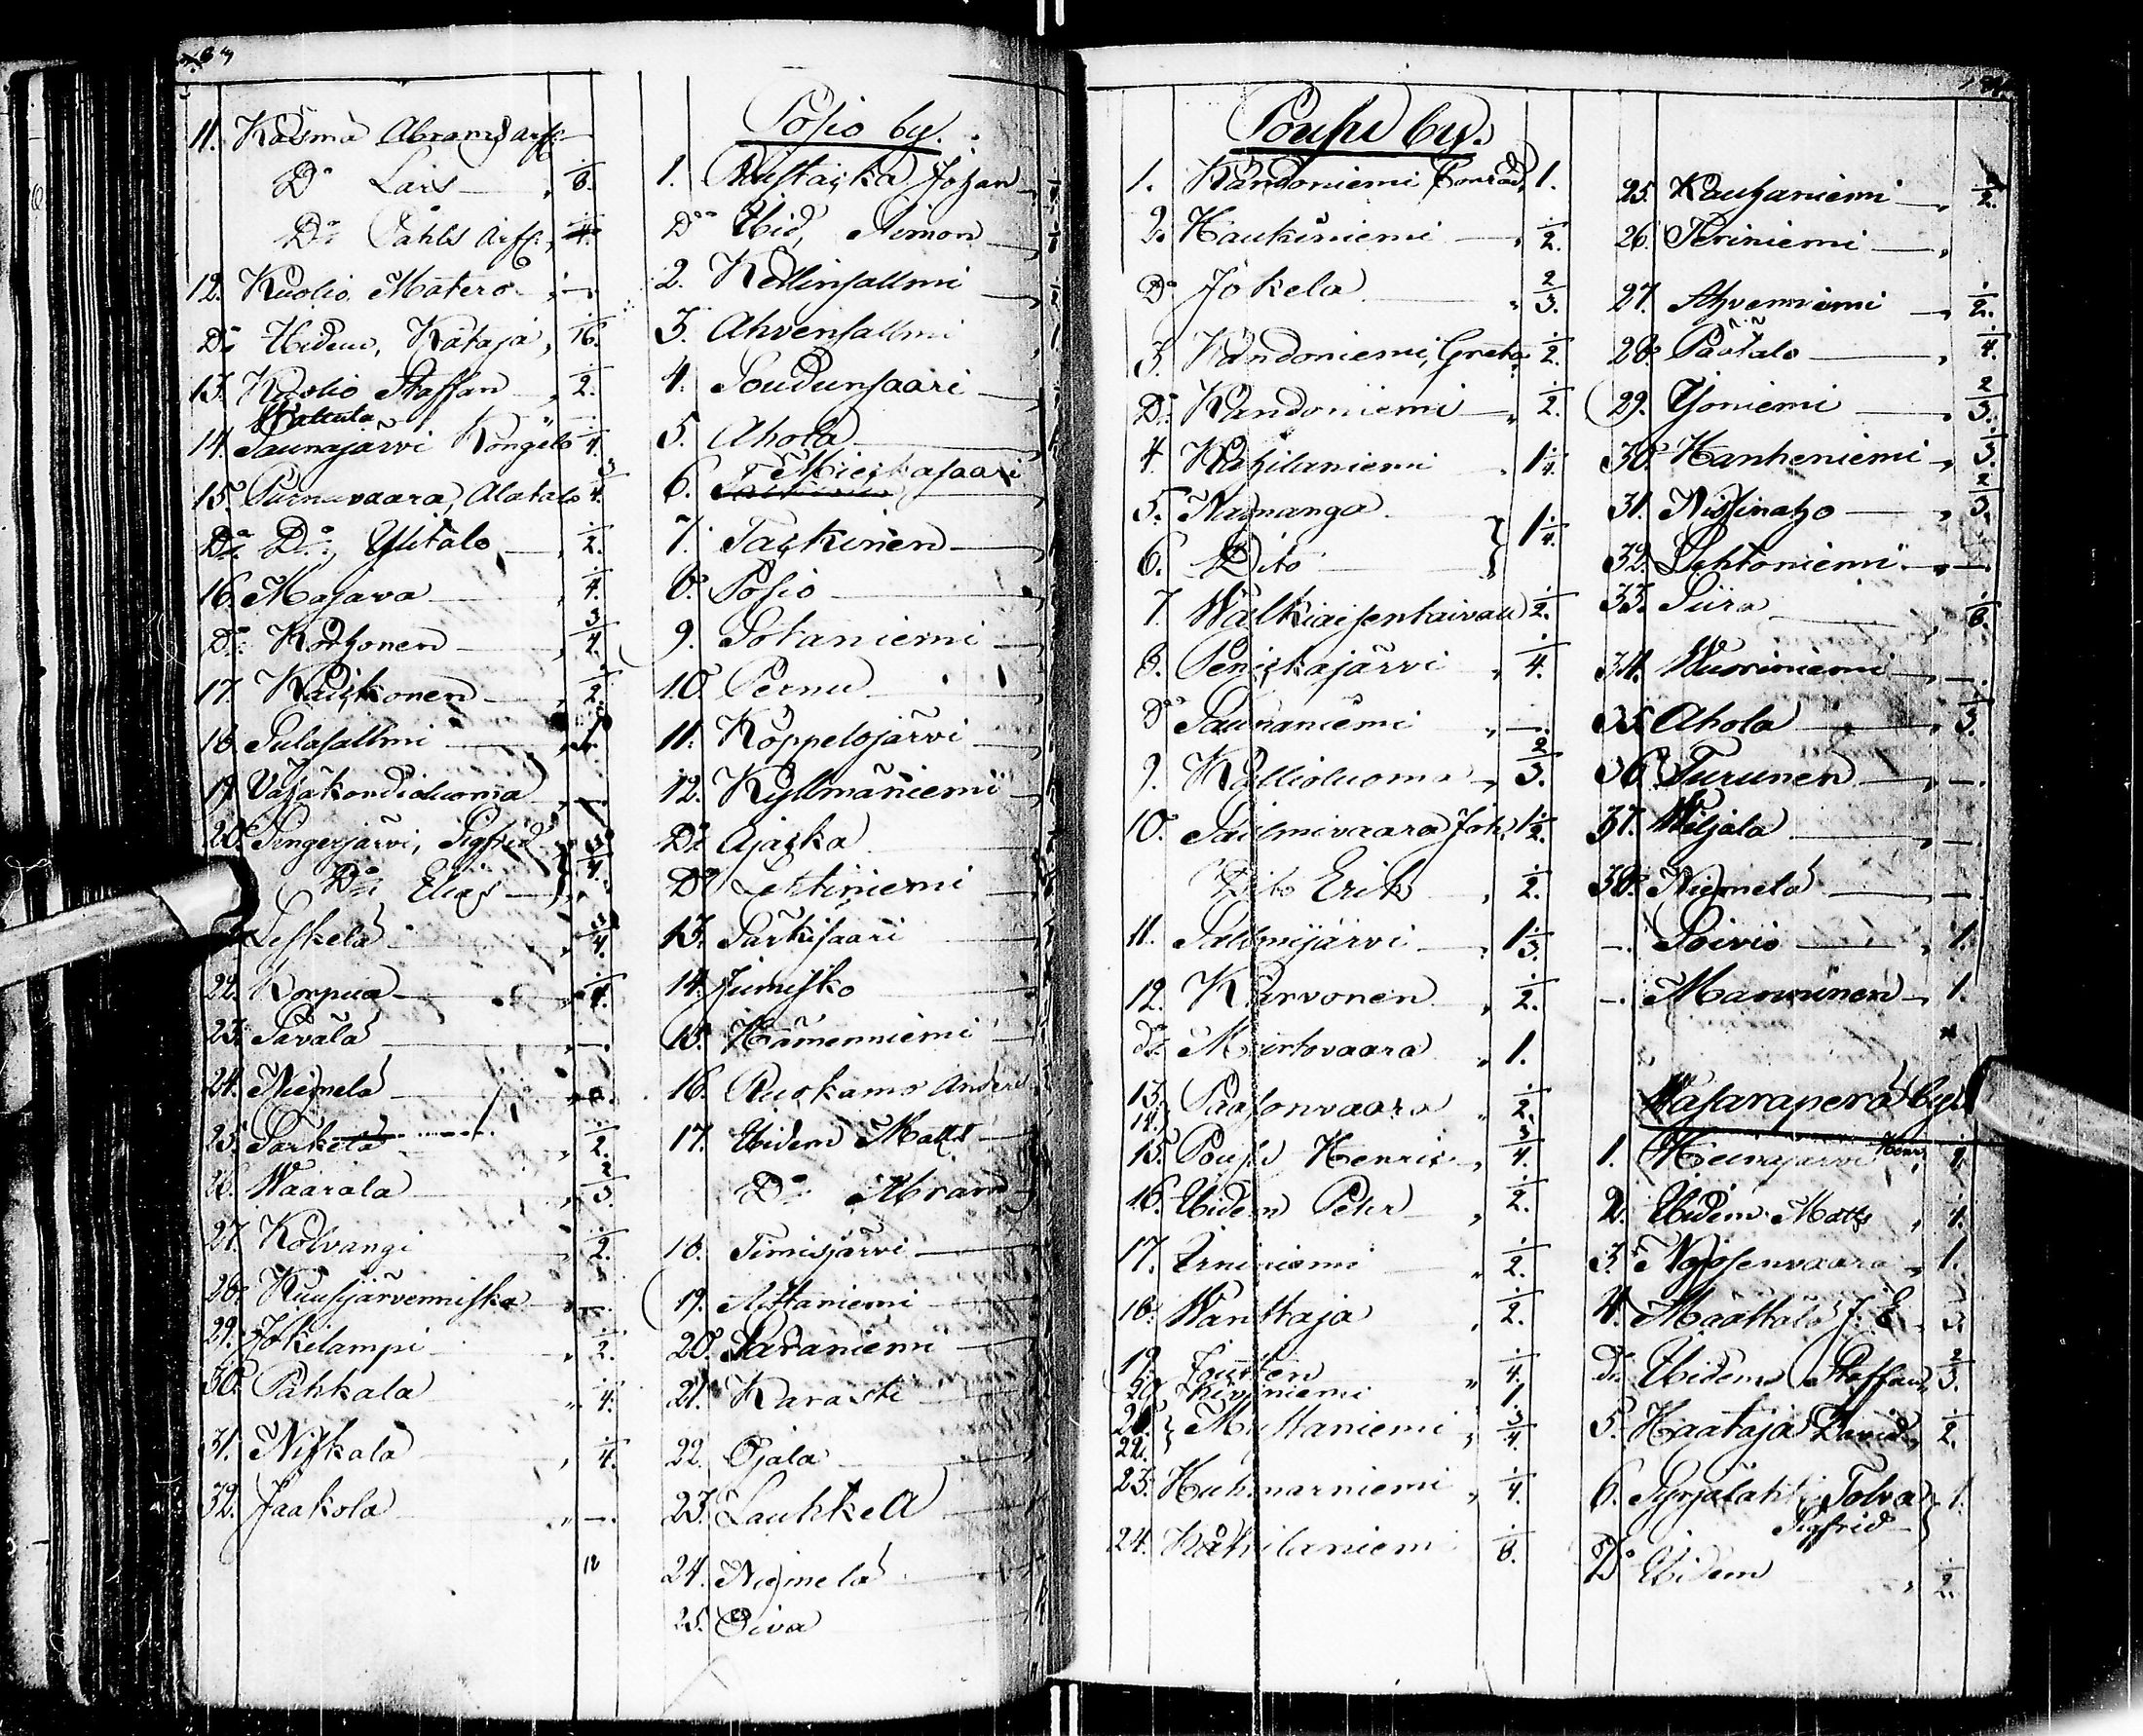 11. Käsmä Abrams arfr.
Do Lars 1/8.
Do Påhls arfr. 1/4.
12. Kuolio Matero —
Do Ibidem, Kätajä, 1/16.
13. Kuolio Staffan 1/2.
Wattula
14. Saunajärvi Köngäs 1/4.
15. Purnuvaara, Alatalo 3/4.
Do Do, Ylitalo 1/2.
16. Majava 1/4.
Do Korhonen 3/4.
17. Raiskonen 1/2.
18. Sulasallmi
19. Vasakondioluoma —
20. Singerjärvi, Sigfrid 3/4.
Do Elias
Leskelä 3/4.
22. Korpua 1/4.
23. Sävälä —
24. Niemelä
25. Särkelä 1/2.
26. Waarala 2/3.
27. Kolvangi 1/2.
28. Kuusijärvenniska —
29. Jokelampi 1/2.
30. Pahkala 1/4.
31. Niskala 1/4.
32. Jaakola —
Posio by.
1. Johan
Do Ibid, Simon
2. Kellinsallmi
3. Ahvensallmi
4. Soudunsaari
5. Ahola
6. Mieskasaari
7. Taskinen
8. Posio
9. Sotaniemi
10. Pernu
11. Koppelojärvi
12. Kyllmäniemi
Do Ajaska
Do Lehtiniemi
13. Särkisaari
14. Jumisko
15. Hämenniemi
16. Ruokamo Anders
17. Ibidem Matts
Do Abram
18. Timisjärvi
19. Aittaniemi
20. Paraniemi
21. Karasti
22. Ojala
23. Lauhkea
24. Niemelä
25. Oiva
Poussu by.
1. Kandoniemi Conrad, 1.
2. Haukiniemi 1/2.
Do Jokela 2/3.
3. Kandoniemi, Greta 1/2.
Do Kandoniemi 1/2.
4. Kahilaniemi 1 1/4.
5. Narnanga
6. Dito 1 1/4.
7. Walkiaisentaival 1/2.
8. Peniskajärvi 1/4.
Do Saunaniemi —
9. Kallioluoma 2/3.
10. Sailmivaara Joh. 1 1/2.
Dito Erik 1/2.
11. Sallmijärvi 1 1/3.
12. Karvonen 1/2.
Do Murtovaara 1.
13.
14. Paasonvaara 1/2.
15. Poussu Henric 3/4.
16. Ibidem Petr 1/2.
17. Irniniemi 1/2.
18. Wanttaja 1/2.
19. Jousten 1/4.
20. Kiviniemi 1.
21.
22. Multaniemi 3/4.
23. Huhmarniemi 1/4.
24. Kahilaniemi 1/8.
25. Rauhaniemi 1/2.
26. Teriniemi
27. Ahvenniemi 1/2.
28. Päätalo 1/4.
29. Yoniemi 2/3.
30. Hanheniemi 1/3.
31. Nissinaho 2/3.
32. Lehtoniemi —
33. Siira 1/8.
34. Wuoriniemi —
35. Ahola 1/3.
36. Turunen —
37. Wiljala —
38. Niemelä —
— Soivio 1.
— Manninen 1.
Wasaraperä by.
1. Heinajärvi Henr.
2. Ibidem Matts
3. Nojosenvaara 1.
4. Määttälä J. E.
Do Ibidem, Staffan 2/3.
5. Haataja David 1/2.
6. Syrjälahti Tolva 1.
Sigfrid
Do Ibidem 1/2.